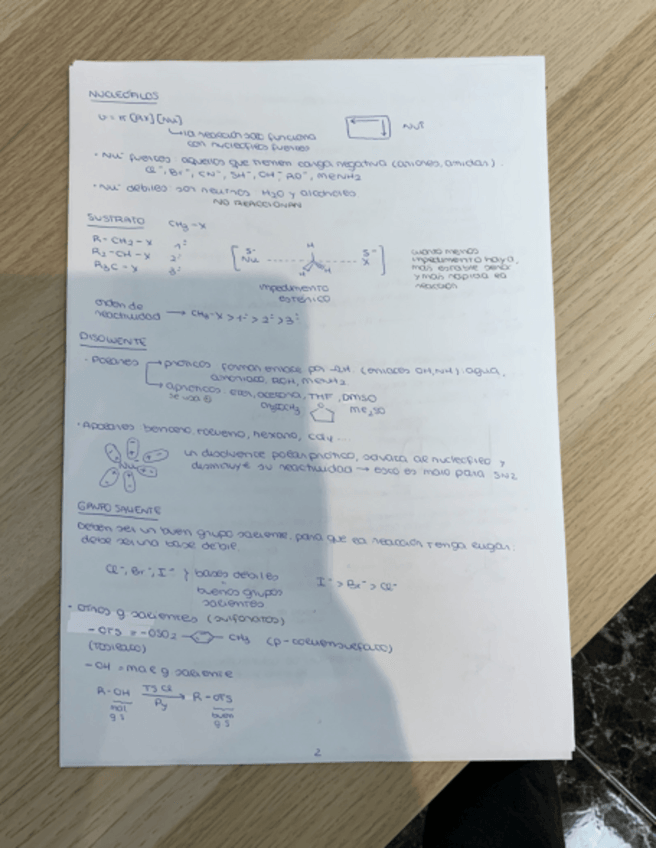 NUCLEÓFILOS
v = k [RX] [Nu]
la reacción solo funciona
con nucleófilos fuertes
· Nu⁻ fuertes aquellos que tienen carga negativa (aniones, amidas):
Cl⁻, Br⁻, CN⁻, SH⁻, OH⁻, RO⁻, MeNH2
· Nu⁻ débiles son neutros H2O y alcoholes
NO REACCIONAN
SUSTRATO
CH3-X
R-CH2-X 1º
R2-CH-X 2º
R3C-X 3º
[ δ⁻ Nu ----- H H H ----- δ⁻ X ]
impedimento
estérico
cuanto menos
impedimento haya,
más estable será
y más rápida la
reacción
orden de
reactividad → CH3-X > 1º > 2º > 3º
DISOLVENTE
· Polares → próticos forman enlace por -H. (enlaces OH, NH) agua,
amoniaco, ROH, MeNH2
→ apróticos: éter, acetona, THF, DMSO
se usa
CH3COCH3 Me2SO
· Apolares benceno, tolueno, hexano, CCl4...
Nu
un disolvente polar prótico, solvata al nucleófilo y
disminuye su reactividad → esto es malo para SN2
GRUPO SALIENTE
Deben ser un buen grupo saliente, para que la reacción tenga lugar:
debe ser una base débil.
Cl⁻, Br⁻, I⁻ } bases débiles
buenos grupos
salientes
I⁻ > Br⁻ > Cl⁻
· Otros g salientes (sulfonatos)
- OTs = -OSO2 - CH3 (p-toluensulfato)
(tosilato)
- OH = mal g saliente
R-OH TsCl Py → R-OTs
mal
g s
buen
g s
2